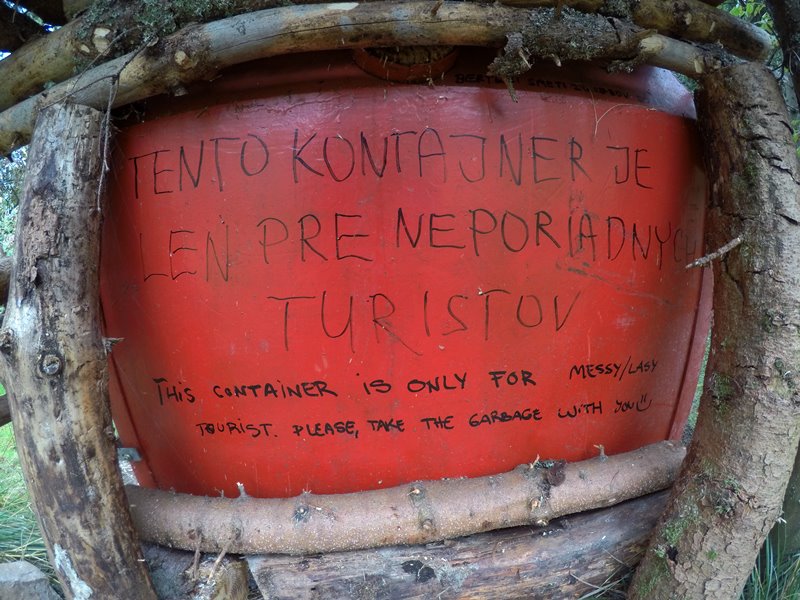 TENTO KONTAJNER JE
LEN PRE NEPORIADNYCH
TURISTOV
THIS CONTAINER IS ONLY FOR MESSY/LASY
TOURIST. PLEASE, TAKE THE GARBAGE WITH YOU☺